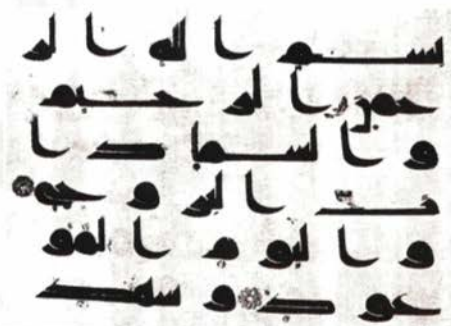 بسم الله الر
حمن الرحيم
والسما ذا
ت البروج
واليوم المو
عود وشهد